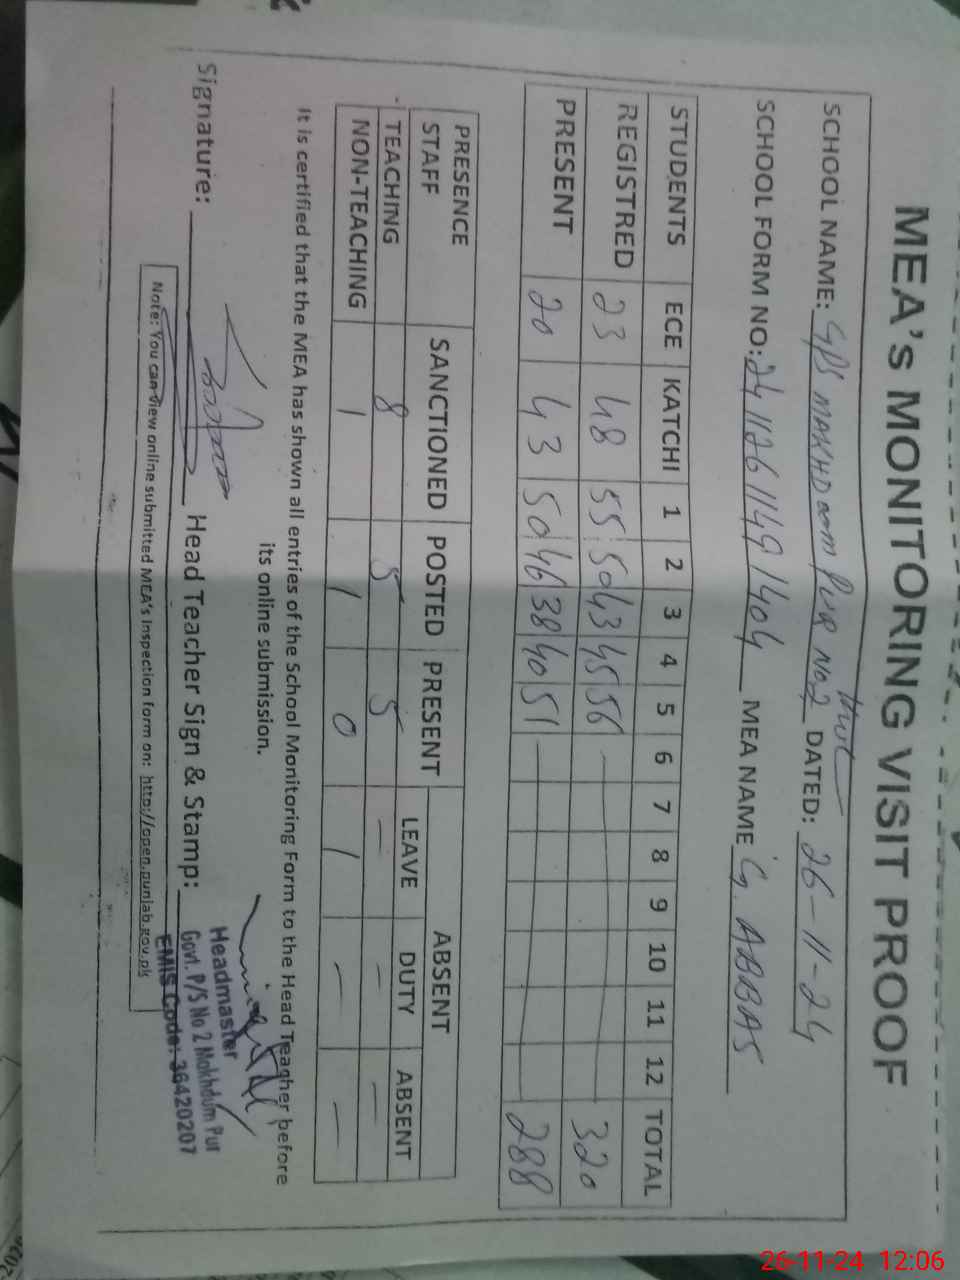 MEA's MONITORING VISIT PROOF
SCHOOL NAME: GPS MAKHDOOM PUR No.2 DATED: 26-11-24
SCHOOL FORM NO: 2411261149 1404 MEA NAME G. ABBAS
STUDENTS ECE KATCHI 1 2 3 4 5 6 7 8 9 10 11 12 TOTAL
REGISTRED 23 48 55 50 43 45 56 — 320
PRESENT 20 43 50 46 38 40 51 — 288
PRESENCE STAFF SANCTIONED POSTED PRESENT ABSENT
LEAVE DUTY ABSENT
TEACHING 8 5 5 — — —
NON-TEACHING 1 1 0 1 — —
It is certified that the MEA has shown all entries of the School Monitoring Form to the Head Teacher before
its online submission.
Signature: Head Teacher Sign & Stamp:
Headmaster
Govt. P/S No 2 Makhdum Pur
EMIS Code: 36420207
Note: You can view online submitted MEA's Inspection form on: http://open.punjab.gov.pk
26-11-24 12:06